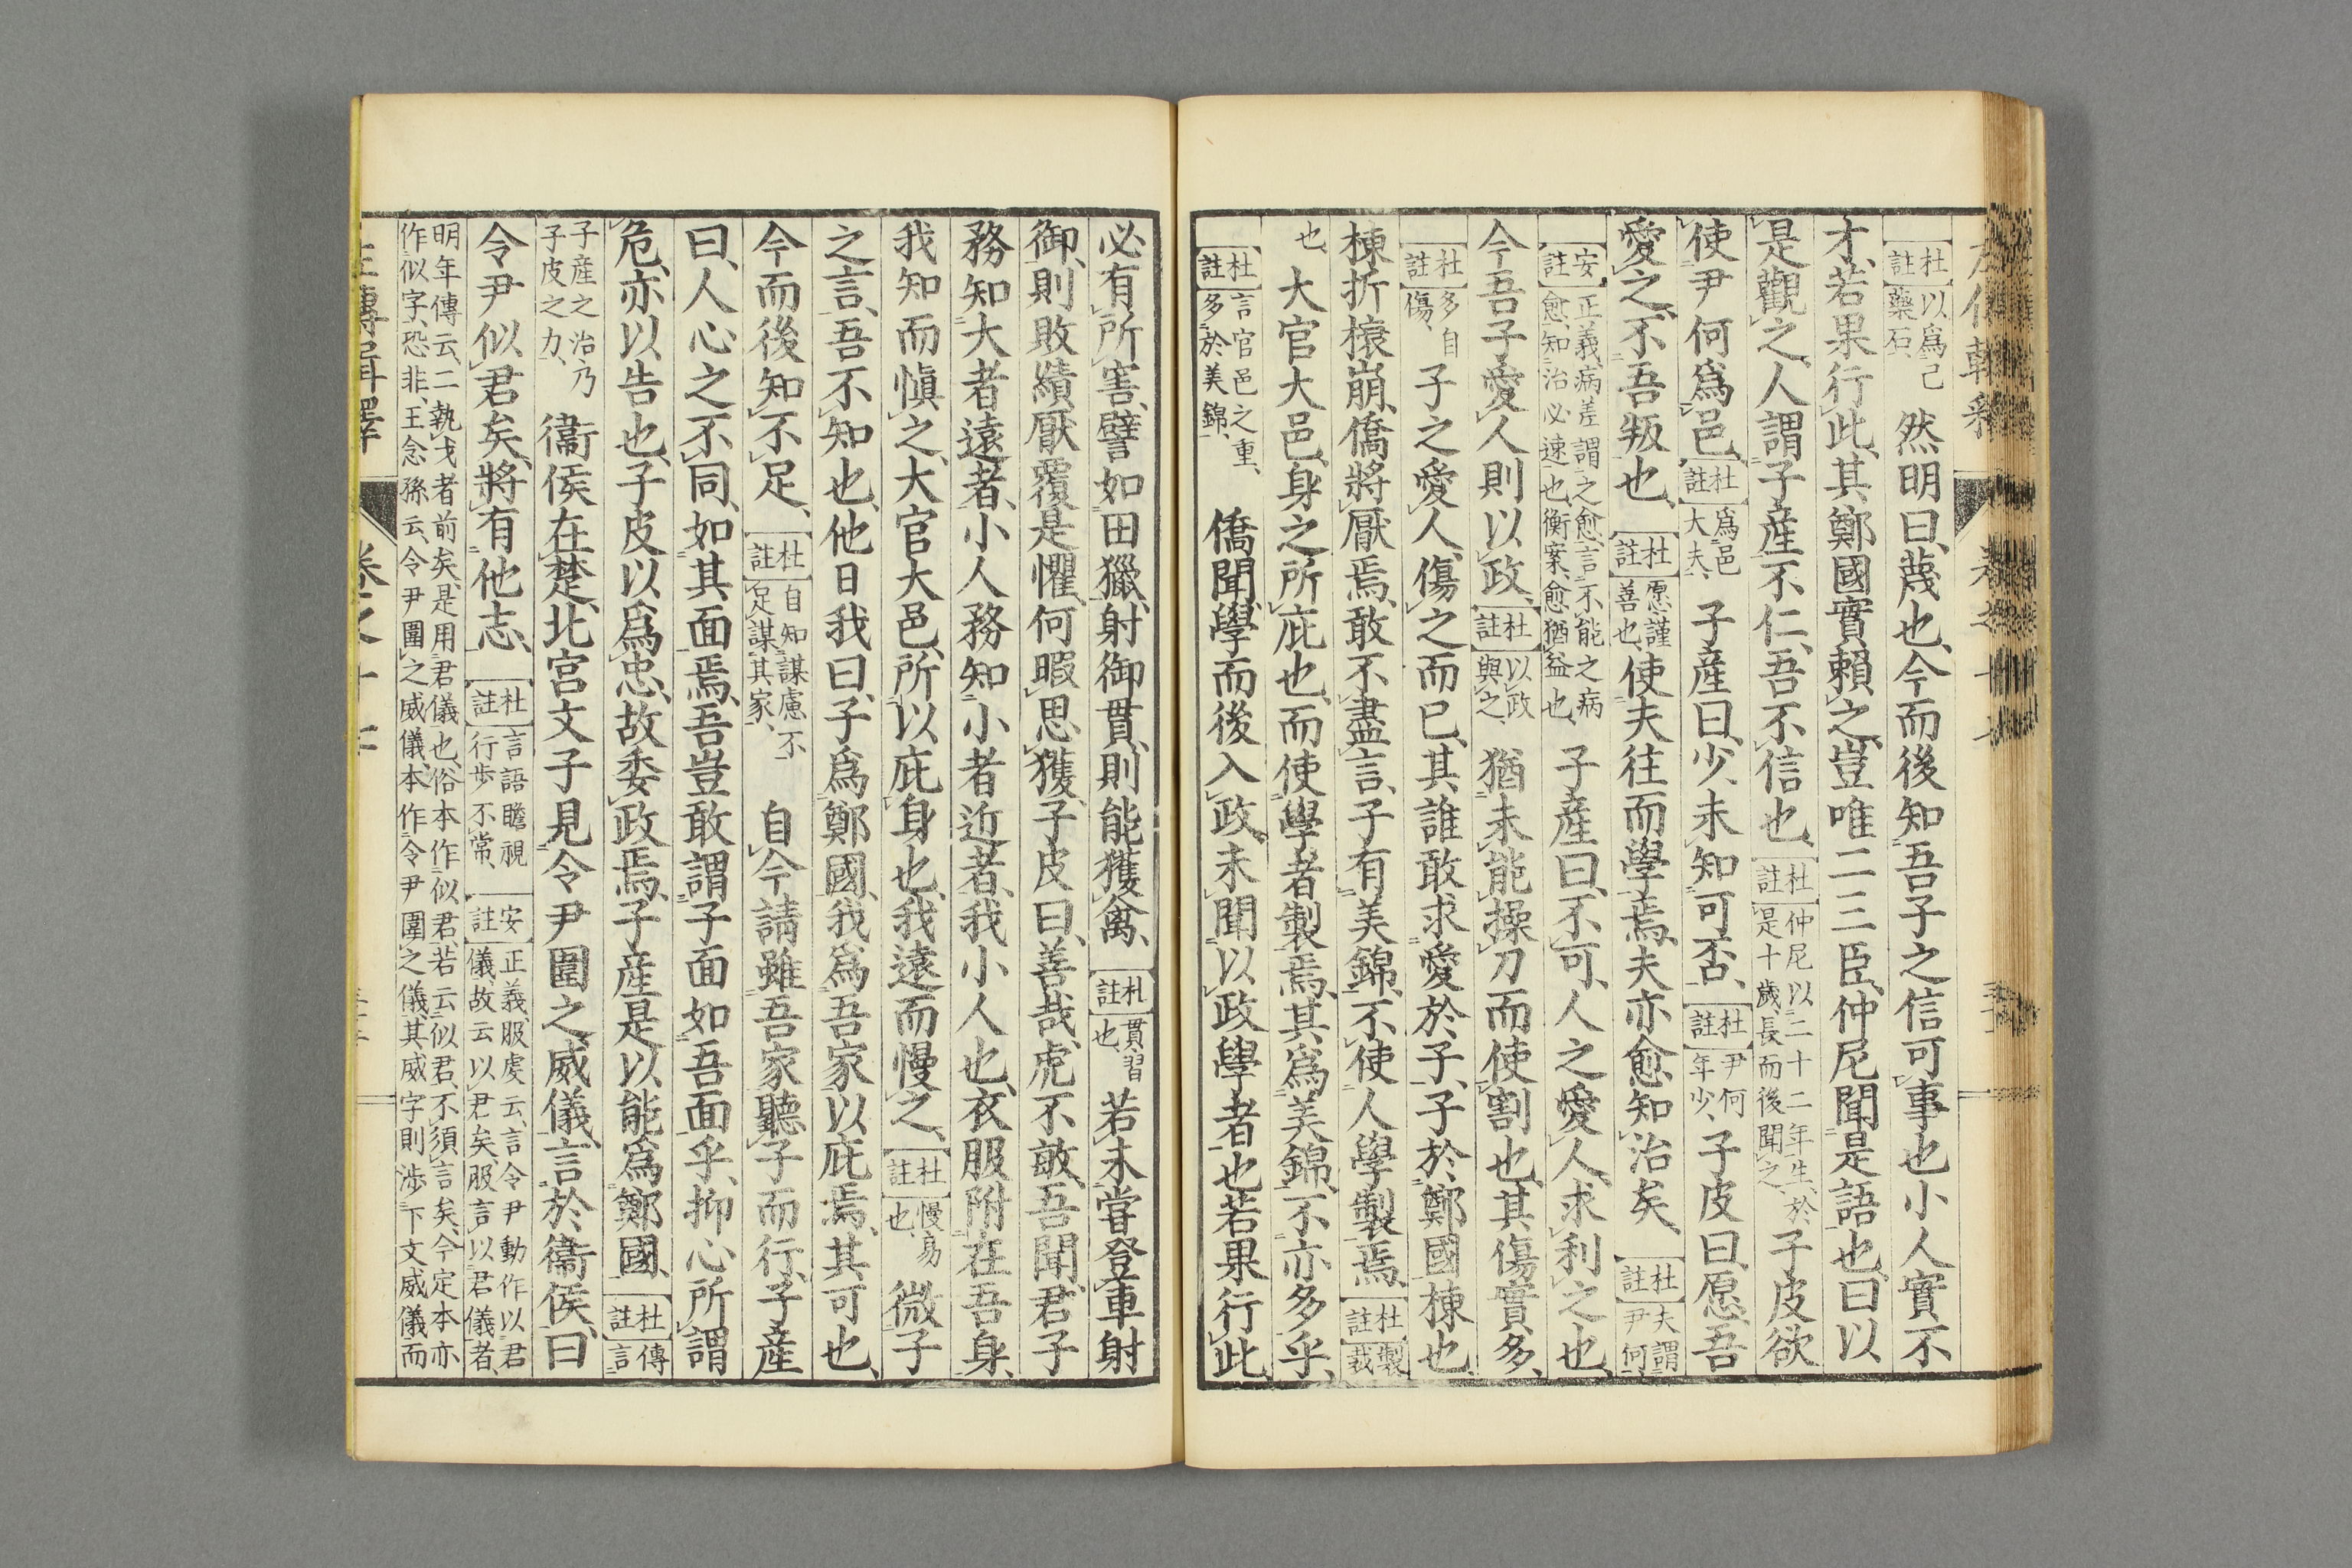 杜註以爲己藥石、然明曰、蔑也、今而後知吾子之信可事也、小人實不
才、若果行此、其鄭國實賴之、豈唯二三臣、仲尼聞是語也、曰、以
是觀之、人謂子産不仁、吾不信也、杜註仲尼以二十二年生、於是十歲、長而後聞之、子皮欲
使尹何爲邑、杜註爲邑大夫、子産曰、少、未知可否、杜註尹何年少、子皮曰、愿、吾
愛之、不吾叛也、杜註愿謹善也、使夫往而學焉、夫亦愈知治矣、杜註夫謂尹何、
安註正義、病差謂之愈、言不能之病愈、知治必速也、衡案、愈猶益也、子産曰、不可、人之愛人、求利之也、
今吾子愛人則以政、杜註以政與之、猶未能操刀而使割也、其傷實多、
杜註多自傷、子之愛人、傷之而已、其誰敢求愛於子、子於鄭國棟也、
棟折榱崩、僑將厭焉、敢不盡言、子有美錦、不使人學製焉、杜註製裁
也、大官大邑、身之所庇也、而使學者製焉、其爲美錦、不亦多乎、
杜註言官邑之重、多於美錦、僑聞學而後入政、未聞以政學者也、若果行此、
必有所害、譬如田獵、射御貫、則能獲禽、杜註貫、習也、若未嘗登車射
御、則敗績厭覆是懼、何暇思獲、子皮曰、善哉、虎不敏、吾聞、君子
務知大者遠者、小人務知小者近者、我小人也、衣服附在吾身、
我知而愼之、大官大邑、所以庇身也、我遠而慢之、杜註慢、易也、微子
之言、吾不知也、他日我曰、子爲鄭國、我爲吾家以庇焉、其可也、
今而後知不足、杜註自知謀慮不足謀其家、自今請雖吾家聽子而行、子産
曰、人心之不同、如其面焉、吾豈敢謂子面如吾面乎、抑心所謂
危、亦以告也、子皮以爲忠、故委政焉、子産是以能爲鄭國、杜註傳言
子産之治、乃子皮之力、衞侯在楚、北宮文子見令尹圍之威儀、言於衞侯、曰、
令尹似君矣、將有他志、杜註言語瞻視行步不常、安註正義、服虔云、言令尹動作以君儀、故云以君矣、服言以君儀者、
明年傳云、二執戈者前矣、是用君儀也、俗本作似君、若云似君、不須言矣、今定本亦作似字、恐非、王念孫云、令尹圍之威儀、本作令尹圍之儀、其威字則涉下文威儀而